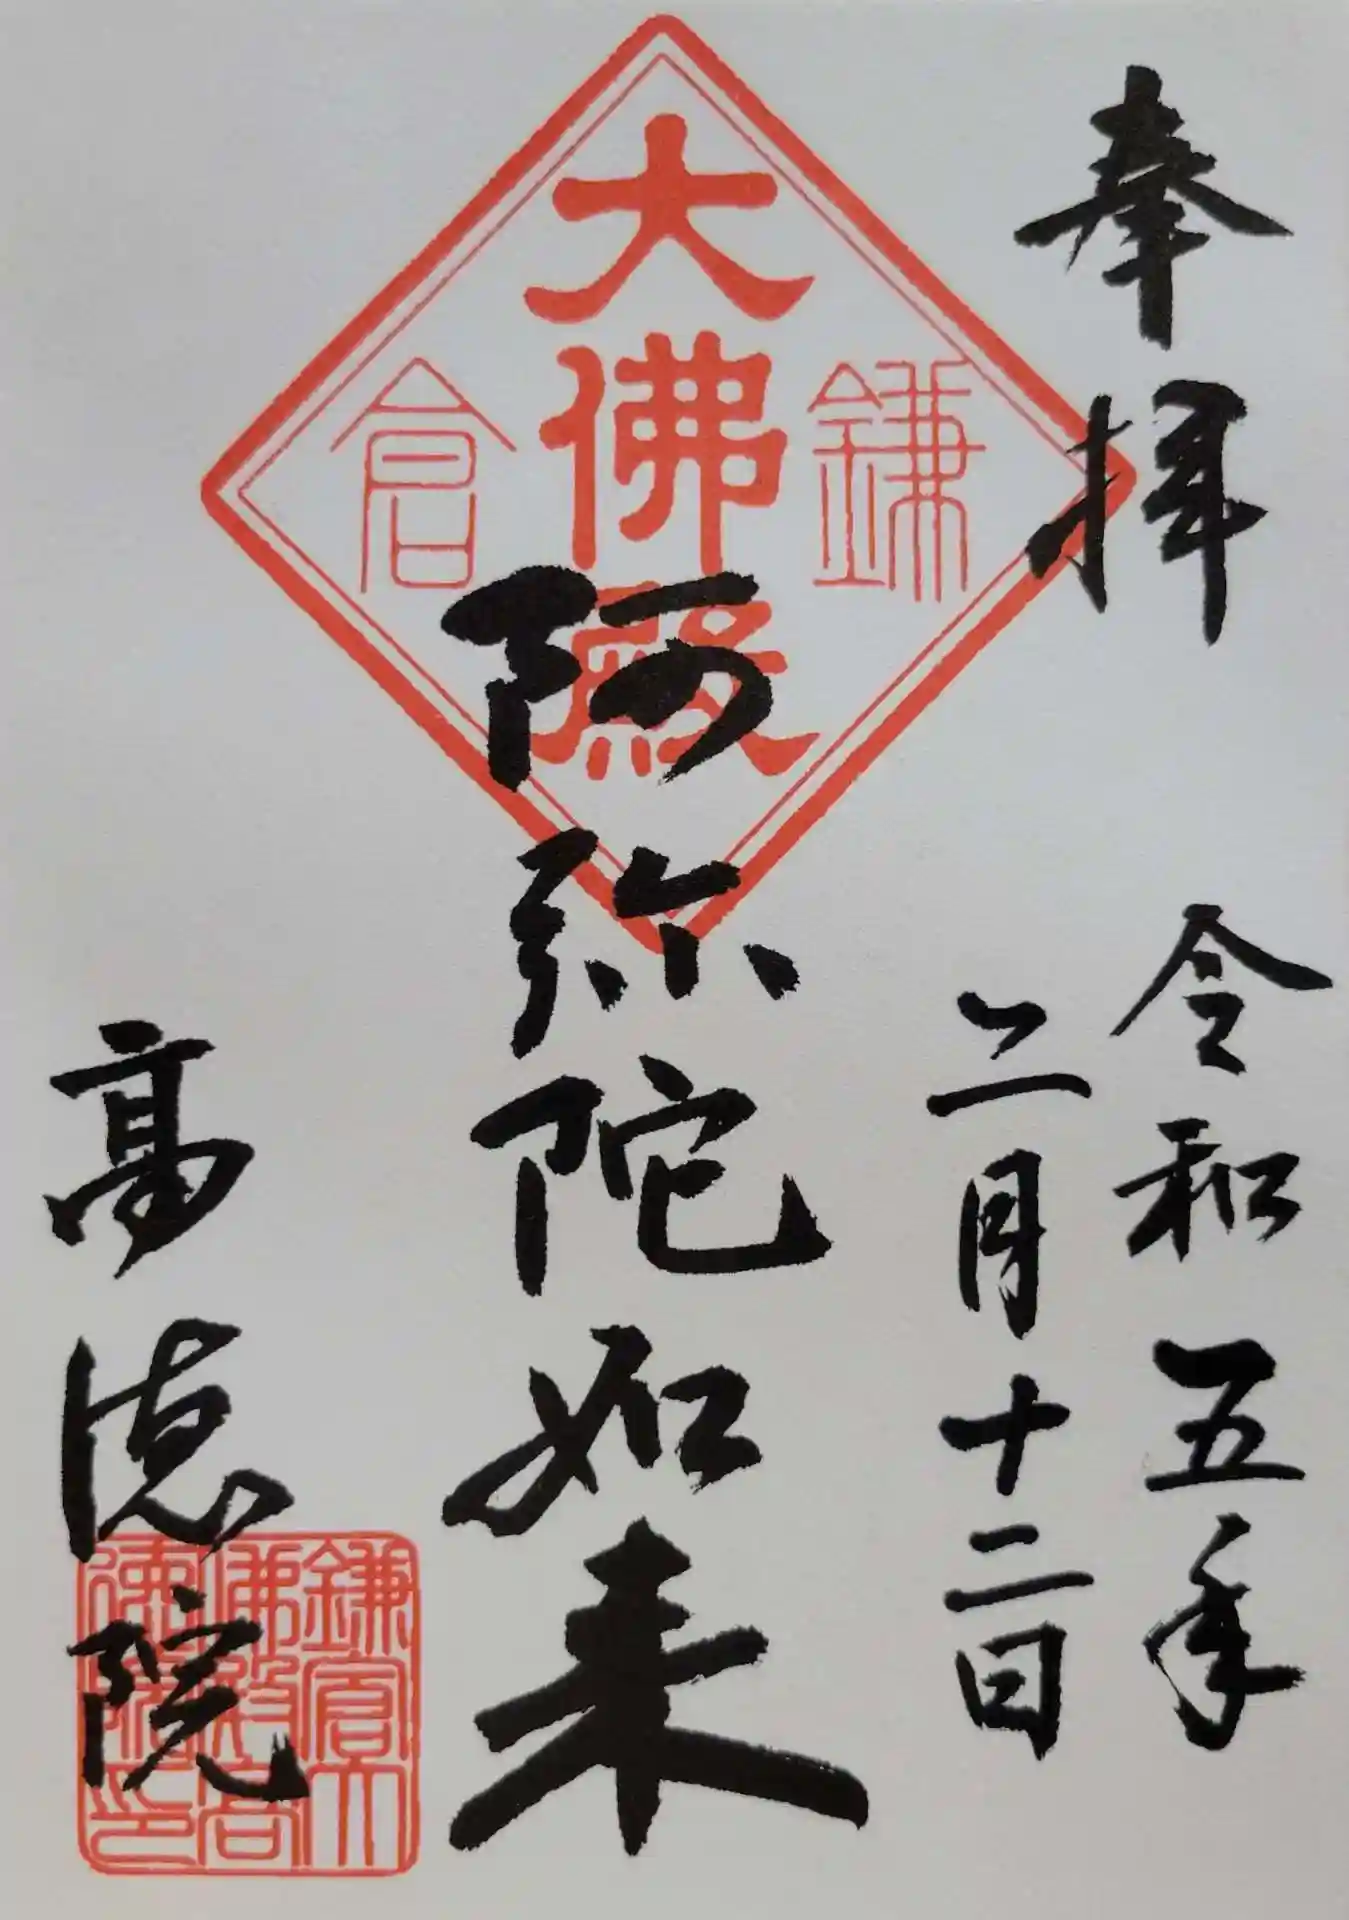 奉拝
令和五年
二月十二日
鎌倉
大佛殿
阿弥陀如来
高徳院
鎌倉大
佛殿高
徳院印